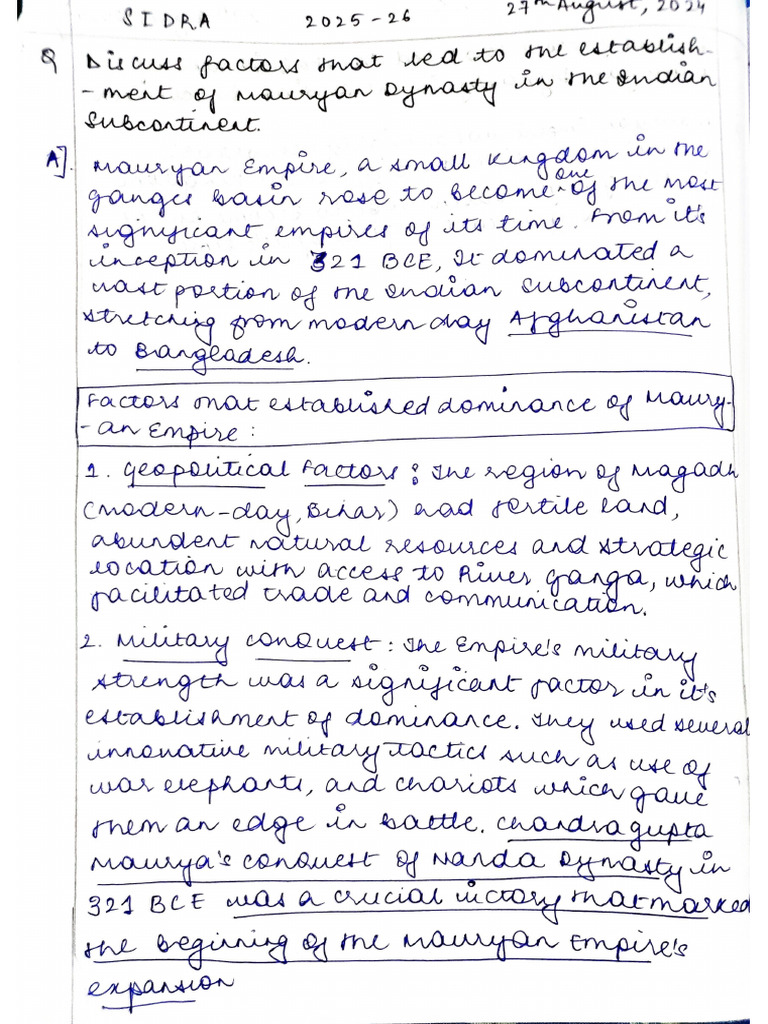 SIDRA 2025-26 27th August, 2024
Q Discuss factors that led to the establish-
-ment of Mauryan Dynasty in the Indian
Subcontinent.
A]. Mauryan Empire, a small kingdom in the
ganges basin rose to become one of the most
significant empires of its time. From it's
inception in 321 BCE, It dominated a
vast portion of the Indian Subcontinent,
stretching from modern day Afghanistan
to Bangladesh.
Factors that established dominance of Maury-
-an Empire:
1. Geopolitical Factors: The region of Magadh
(modern-day, Bihar) had fertile land,
abundent natural resources and strategic
location with access to River Ganga, which
facilitated trade and communication.
2. Military conquest: The Empire's military
strength was a significant factor in it's
establishment of dominance. They used several
innovative military tactics such as use of
war elephants, and chariots which gave
them an edge in battle. Chandragupta
Maurya's conquest of Nanda Dynasty in
321 BCE was a crucial victory that marked
the beginning of the Mauryan Empire's
expansion